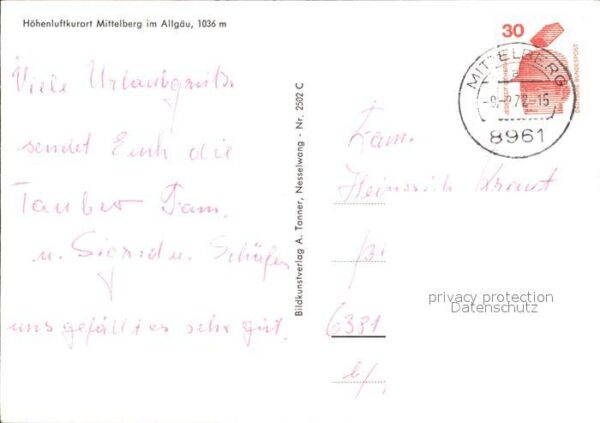 Höhenluftkurort Mittelberg im Allgäu, 1036 m
Viele Urlaubsgrüße
sendet Euch die
Tauber Fam.
u. Sigrid u. Schäfer
uns gefällt es sehr gut.
Bildkunstverlag A. Tanner, Nesselwang - Nr. 2502 C
30
DEUTSCHE BUNDESPOST
MITTELBERG
a
72-15
8961
Fam.
Heinrich
6381
privacy protection
Datenschutz